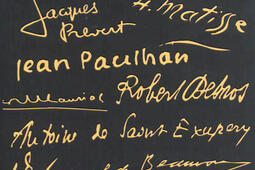 Jacques
Prévert
H. Matisse
Jean Paulhan
Mauriac
Robert Desnos
Antoine de Saint Exupéry
de Beauvoir